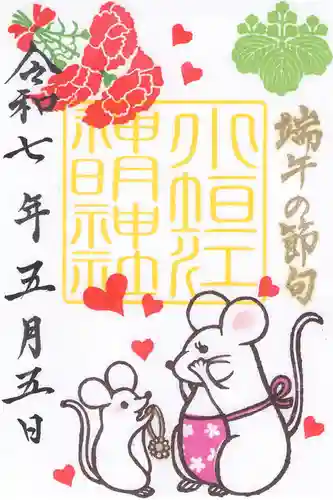 端午の節句
小垣江
神明神社
令和七年五月五日